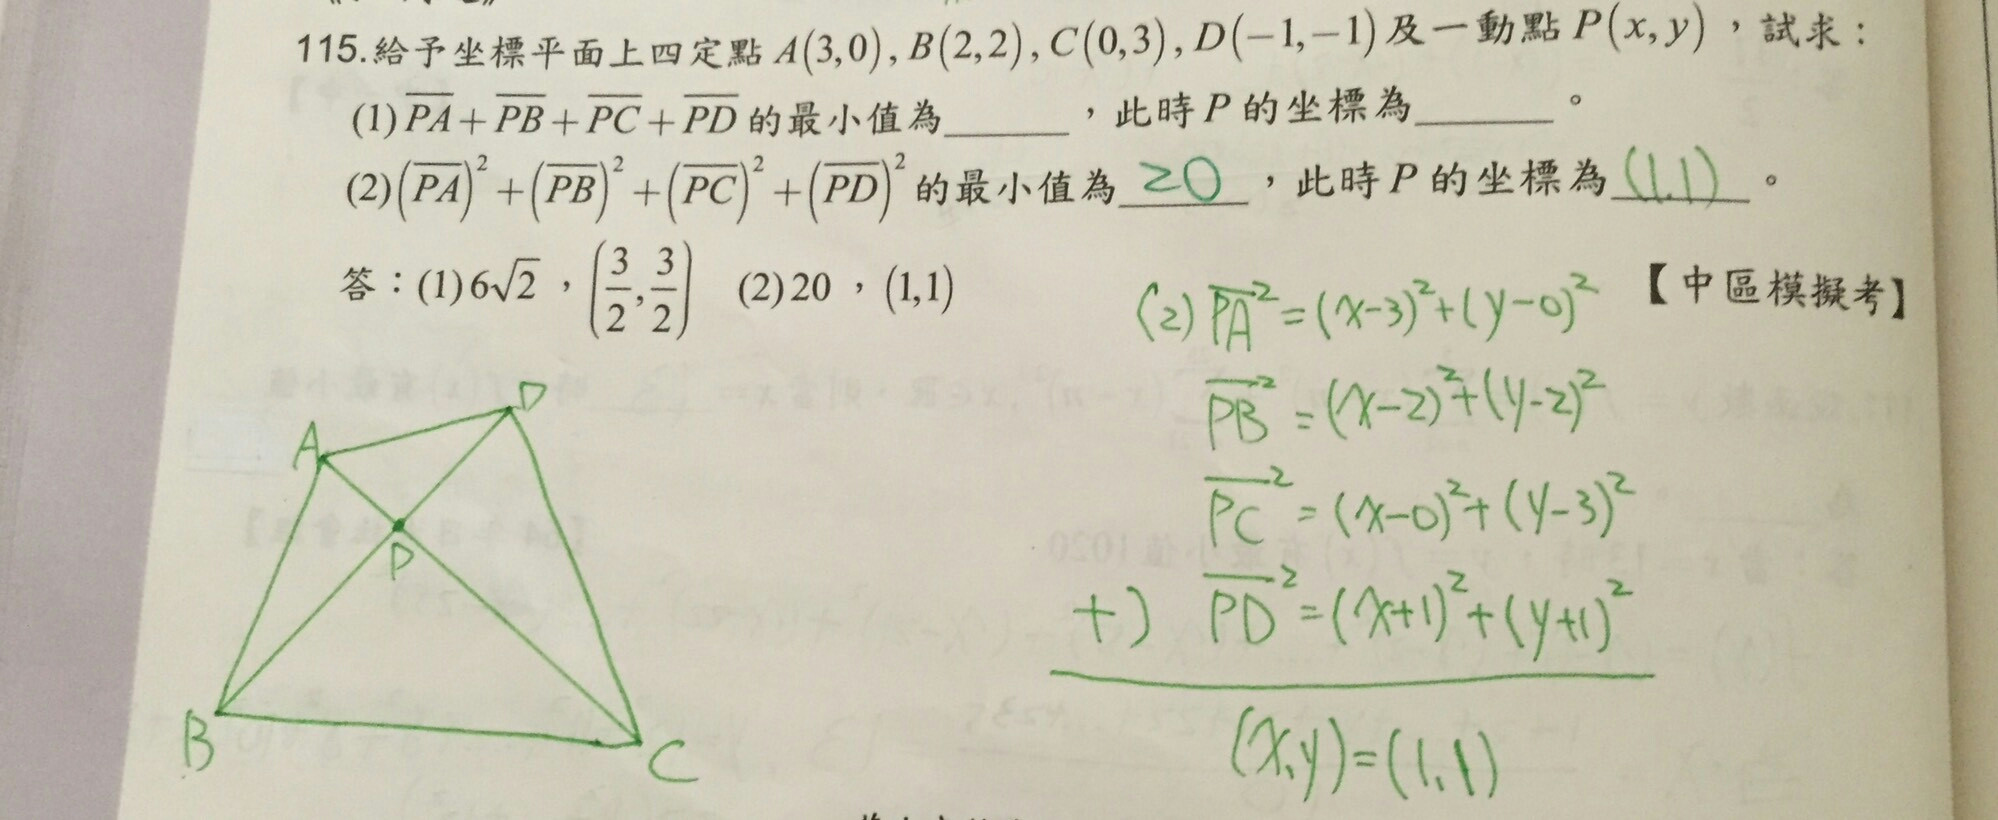 115.給予坐標平面上四定點 A(3,0), B(2,2), C(0,3), D(−1,−1) 及一動點 P(x, y) ，試求：
(1) PA + PB + PC + PD 的最小值為______，此時 P 的坐標為______。
(2) (PA)² + (PB)² + (PC)² + (PD)² 的最小值為 20 ，此時 P 的坐標為 (1,1) 。
答：(1) 6√2 ，(3/2, 3/2) (2) 20 ，(1,1)
【中區模擬考】
(2) PA² = (x−3)² + (y−0)²
PB² = (x−2)² + (y−2)²
PC² = (x−0)² + (y−3)²
+) PD² = (x+1)² + (y+1)²
(x,y) = (1,1)
A
D
P
B
C